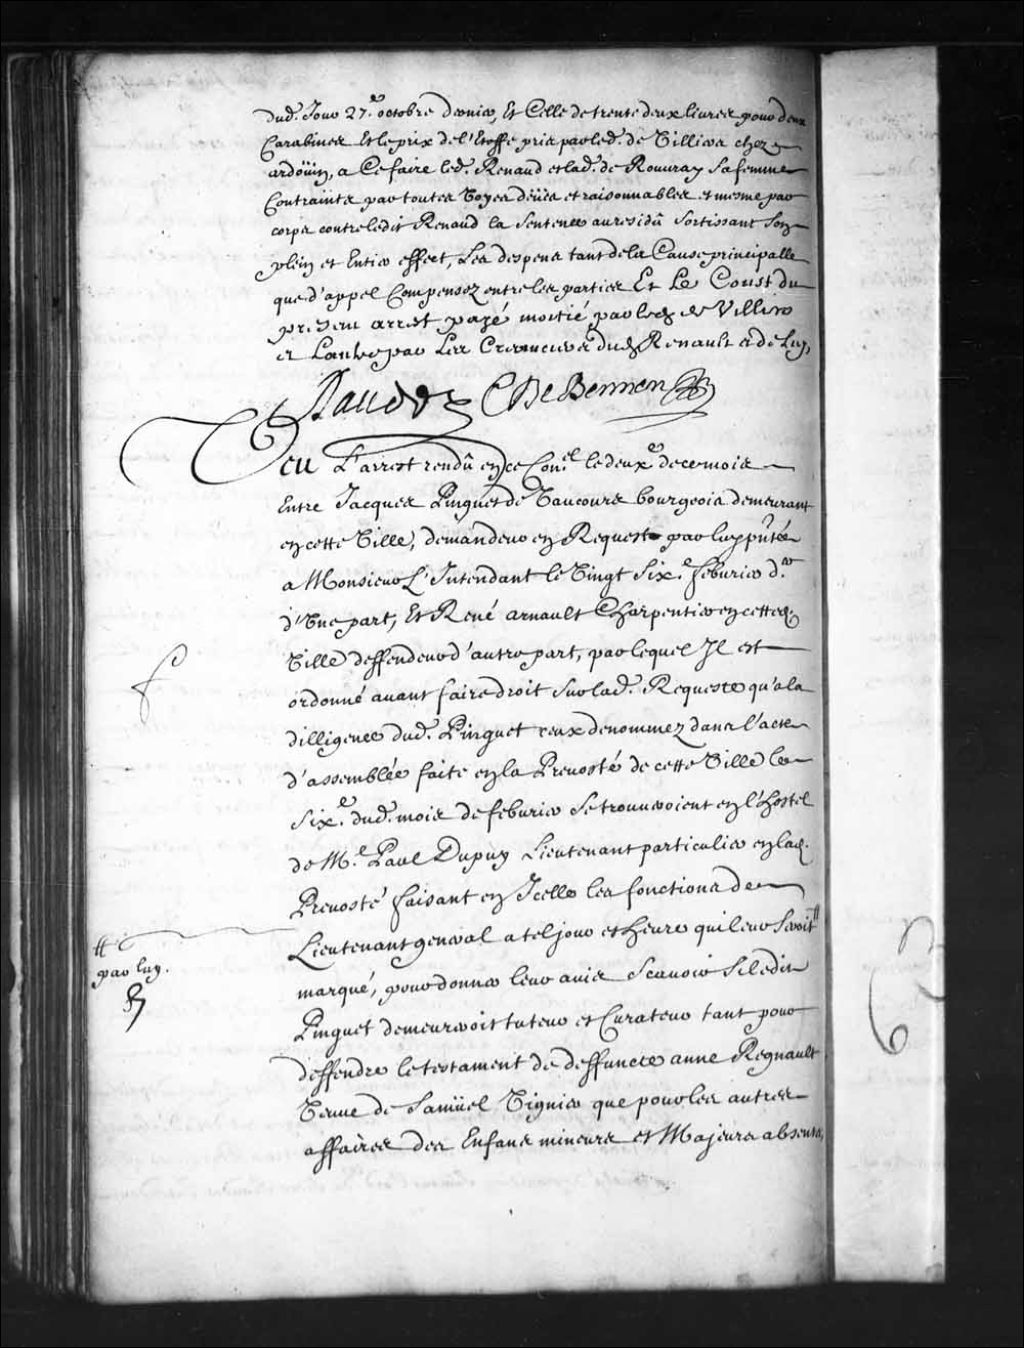 dud. Jour 27.e octobre dernier, Et Celle de trente deux livres pour deux
Carabines Et le prix de l'Etoffe pris par led. de Villiers chez
ardoüin, a Ce faire led. Renaud et lad. de Rouvray sa femme
Contraints par toutes Voyes deües et raisonnables et mesme par
corps contre ledit Renaud la Sentence au residû Sortissant Son
plein et Entier effect, Les despens tant de la Cause principalle
que d'appel Compensez entre les parties Et Le Coust du
present arrest payé moitié par led. de Villiers
et L'autre par Les Creanciers dud. Renault et de Luy,
DeBermen
Veu L'arrest rendû en ce Con.el le deux.e de ce mois
Entre Jacques Pinguet de Vaucours bourgeois demeurant
en cette Ville, demandeur en Requeste par luy
a Monsieur L'Intendant le Vingt Six.e febvrier d.er
d'Une part, Et René arnault Charpentier en cetted.
Ville deffendeur d'autre part, par lequel Il est
ordonné avant faire droit Sur lad. Requeste qu'a la
dilligence dud. Pinguet ceux denommez dans l'acte
d'assemblée faite en la Prevosté de cette Ville le
Six.e dud. mois de febvrier Se trouveroient en l'hostel
de M.e Paul Dupuy Lieutenant particulier en lad.
Prevosté faisant en Icelle les fonctions de
Lieutenant general a tel jour et heure qui leur Seroit #
# par luy.
marqué, pour donner leur avis Scavoir Si ledit
Pinguet demeureroit tuteur et Curateur tant pour
deffendre le testament de deffuncte anne Regnault
Veuve de Samüel Vignier que pour les autres
affaires des Enfans mineurs et Majeurs absens,